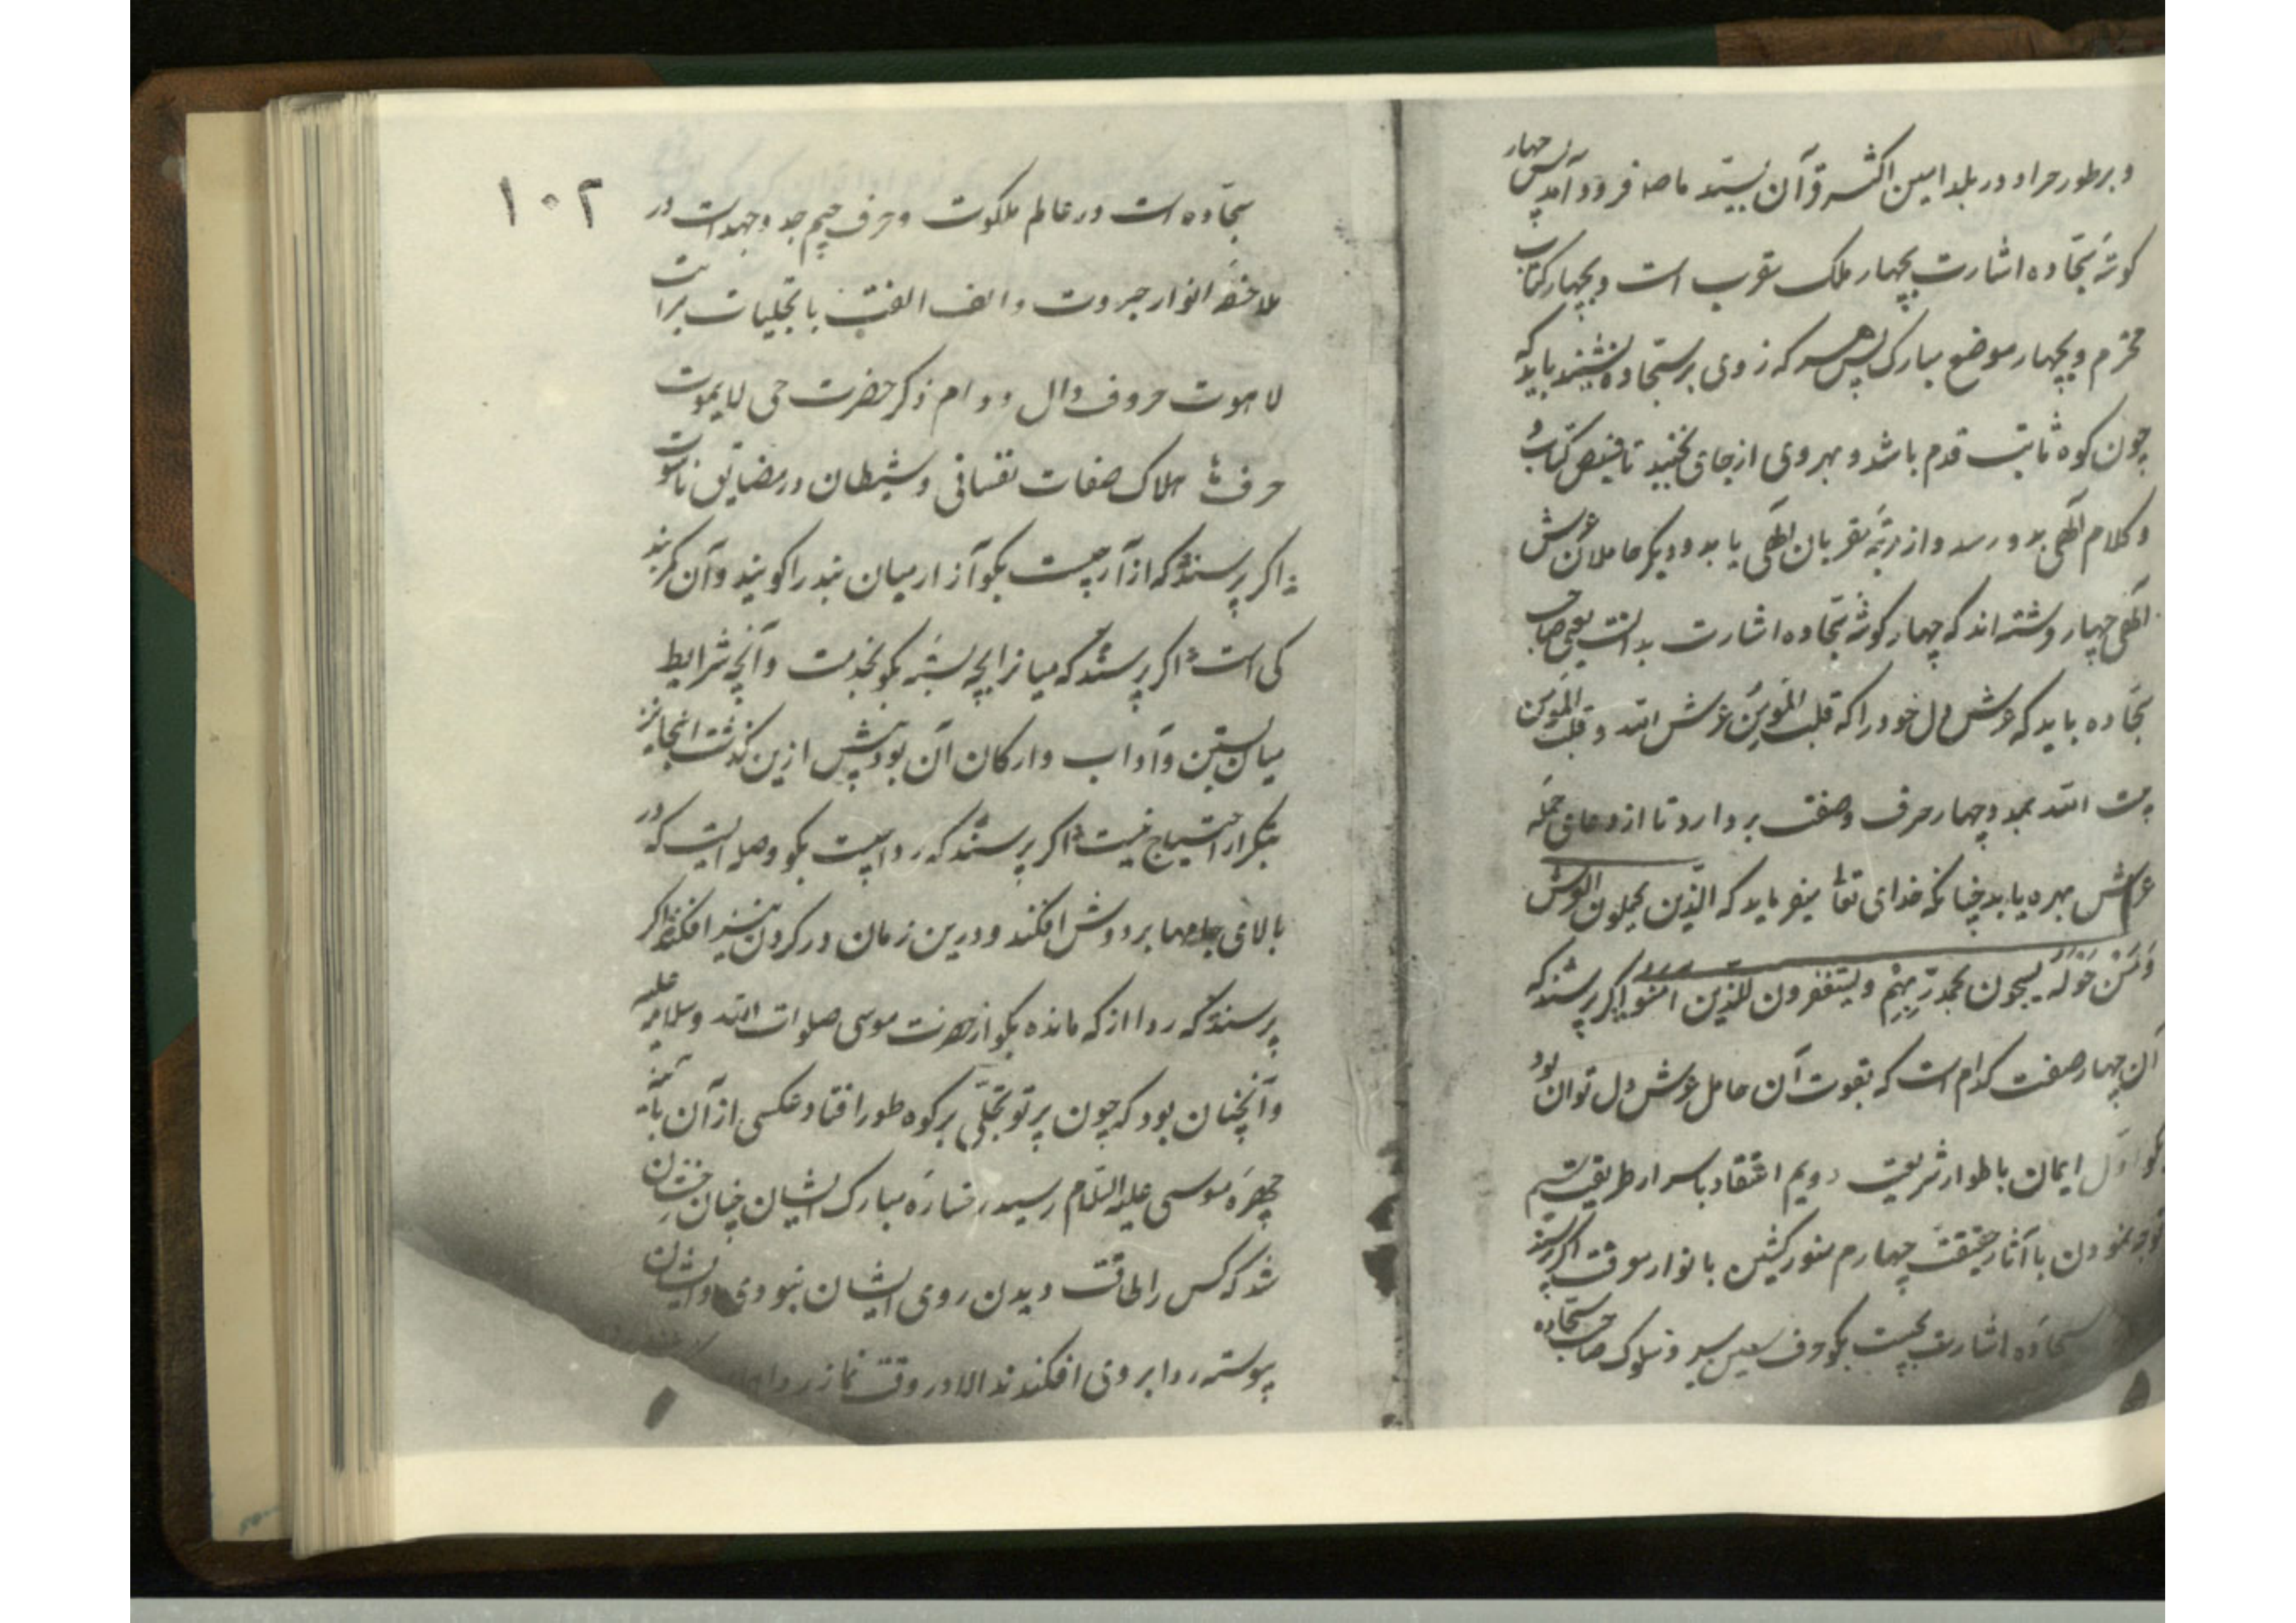 و بر طور حرا و در بلد امین اکثر قرآن فرود آمد پس چهار
کوشهٔ سجّاده اشارت بچهار ملک مقرب است و بچهار کتاب
محترم و بچهار موضع مبارک پس هر که زوی بر سجّاده نشیند باید که
چون کوه ثابت قدم باشد و بهر وی از جای نجنبد تا فیض کتاب و
و کلام الٓهی بدو رسد و از رتبهٔ مقربان الٓهی یابد و دیگر حاملان عرش
الٓهی چهار فرشته‌اند که چهار کوشهٔ سجّاده اشارت بدانست یعنی صاحب
سجّاده باید که عرش دل خود را که قلب المؤمن عرش الله و قلب المؤمن
بیت الله بمدد چهار حرف و صفت بردارد تا از دعای حمله
عرش بهره یابد چنانکه خدای تعالی میفرماید که الّذین یحملون العرش
وَمَنْ حَوْلَهُ یسبحون بحمد ربّهِم و یستغفرون للذین امنوا اکر پرسند که
آن چهار صفت کدام است که بقوت آن حامل عرش دل توان بود
بکو اوّل ایمان باطوار شریعت دویم اعتقاد باسرار طریقت سیم
توجه نمودن بآثار حقیقت چهارم منور کشتن بانوار معرفت اکر پرسند
سجّاده اشارت بچیست بکو حرف سین سیر و سلوک صاحب سجّاده
۱۰۲
سجّاده است در عالم ملکوت و حرف جیم جد و جهد است در
ملاحظهٔ انوار جبروت و الف الفت با تجلیات برات
لاهوت حروف دال دوام ذکر حضرت حی لایموت
حرف ها هلاک صفات نفسانی و شیطان در مضایق ناسوت
اکر پرسند که ازار چیست بکو آزار میان بند را کویند و آن کمربند
کی است اکر پرسند که میان را بچه بسته بکو بخدمت و آنچه شرایط
میان بستن و آداب و ارکان آن بود پیش ازین کذشت اینجا نیز
بتکرار احتیاج نیست اکر پرسند که ردا چیست بکو وصله ایست که در
بالای جامها بر دوش افکنند و درین زمان در کردن نیز افکنند اکر
پرسند که ردا از که مانده بکو از حضرت موسی صلوات الله و سلامه علیه
و آنچنان بود که چون پرتو تجلّی بر کوه طور افتاد عکسی از آن بآینه
چهرهٔ موسی علیه السّلام رسید رخسارهٔ مبارک ایشان چنان رخشان
شد که کس را طاقت دیدن روی ایشان نبودی و ایشان
پیوسته ردا بر روی افکندند الا در وقت نماز ردا